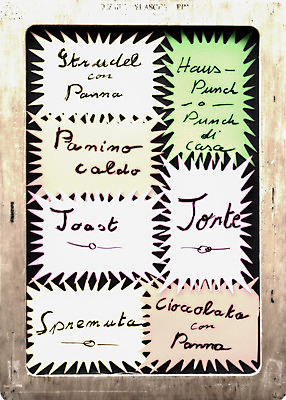 Strudel
con
Panna
Panino
caldo
Toast
Spremuta
Haus-
Punch
-o-
Punch
di
casa
Torte
Cioccolata
con
Panna